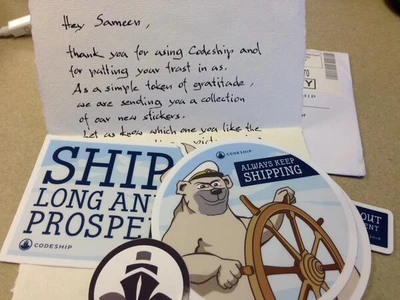 Hey Sameen,
thank you for using Codeship and
for putting your trust in us.
As a simple token of gratitude,
we are sending you a collection
of our new stickers.
Let us know which one you like the
SHIP
LONG AND
PROSPER
CODESHIP
CODESHIP
ALWAYS KEEP
SHIPPING
OUT